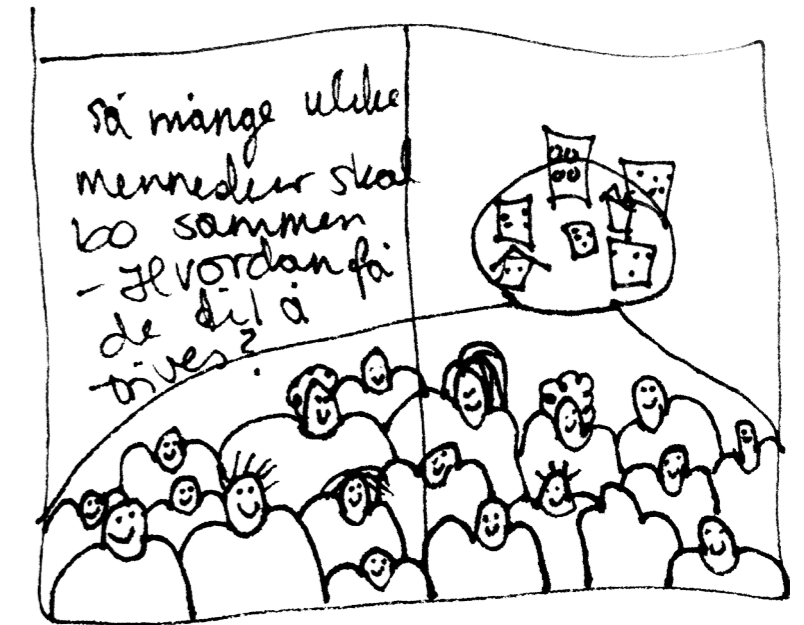 Så mange ulike
mennesker skal
bo sammen
- Hvordan få
de til å
trives?